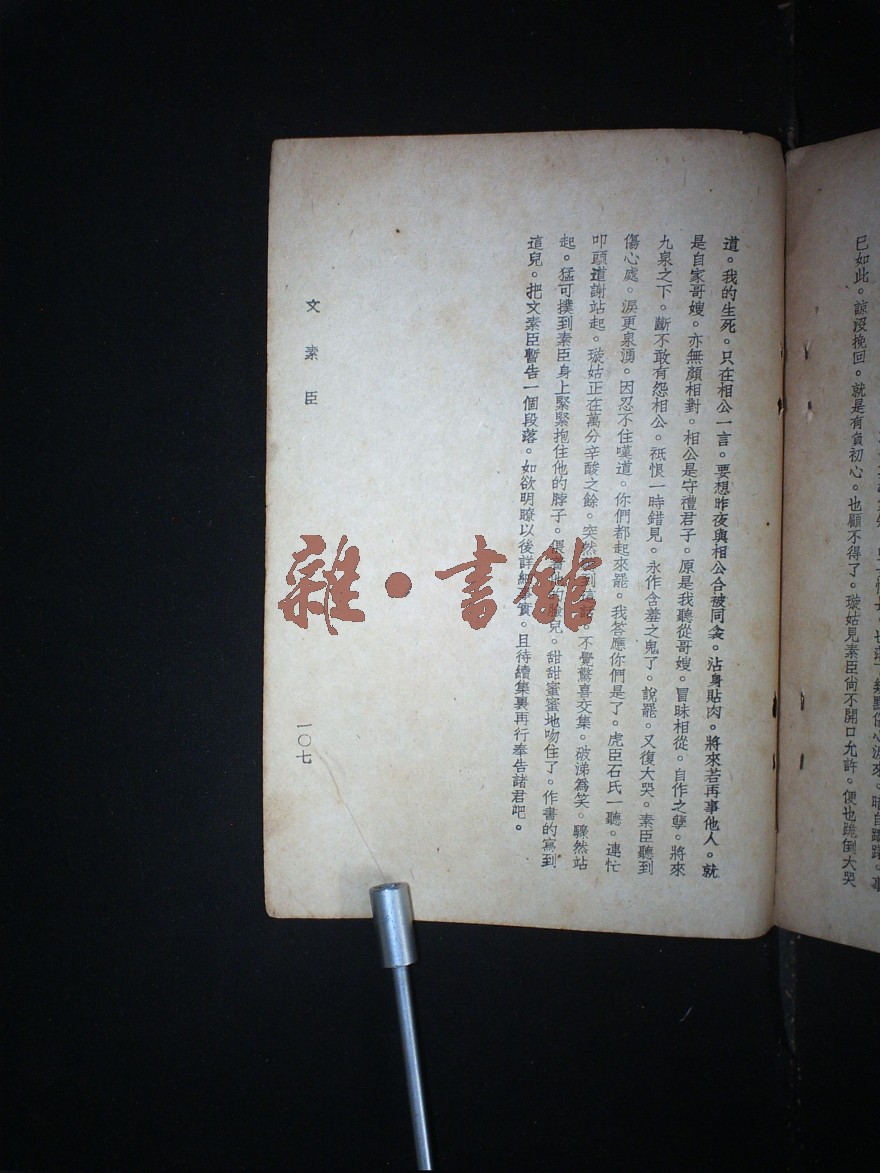 已如此。諒沒挽回。就是有負初心。也顧不得了。璇姑見素臣尙不開口允許。便也跪倒大哭
道。我的生死。只在相公一言。要想昨夜與相公合被同衾。沾身貼肉。將來若再事他人。就
是自家哥嫂。亦無顏相對。相公是守禮君子。原是我聽從哥嫂。冒昧相從。自作之孽。將來
九泉之下。斷不敢有怨相公。祇恨一時錯見。永作含羞之鬼了。說罷。又復大哭。素臣聽到
傷心處。淚更泉湧。因忍不住嘆道。你們都起來罷。我答應你們是了。虎臣石氏一聽。連忙
叩頭道謝站起。璇姑正在萬分辛酸之餘。突然到。不覺驚喜交集。破涕爲笑。驟然站
起。猛可撲到素臣身上緊緊抱住他的脖子。偎他的臉兒。甜甜蜜蜜地吻住了。作書的寫到
這兒。把文素臣暫告一個段落。如欲明瞭以後詳細事實。且待續集裏再行奉告諸君吧。
文素臣
一〇七
雜·書館